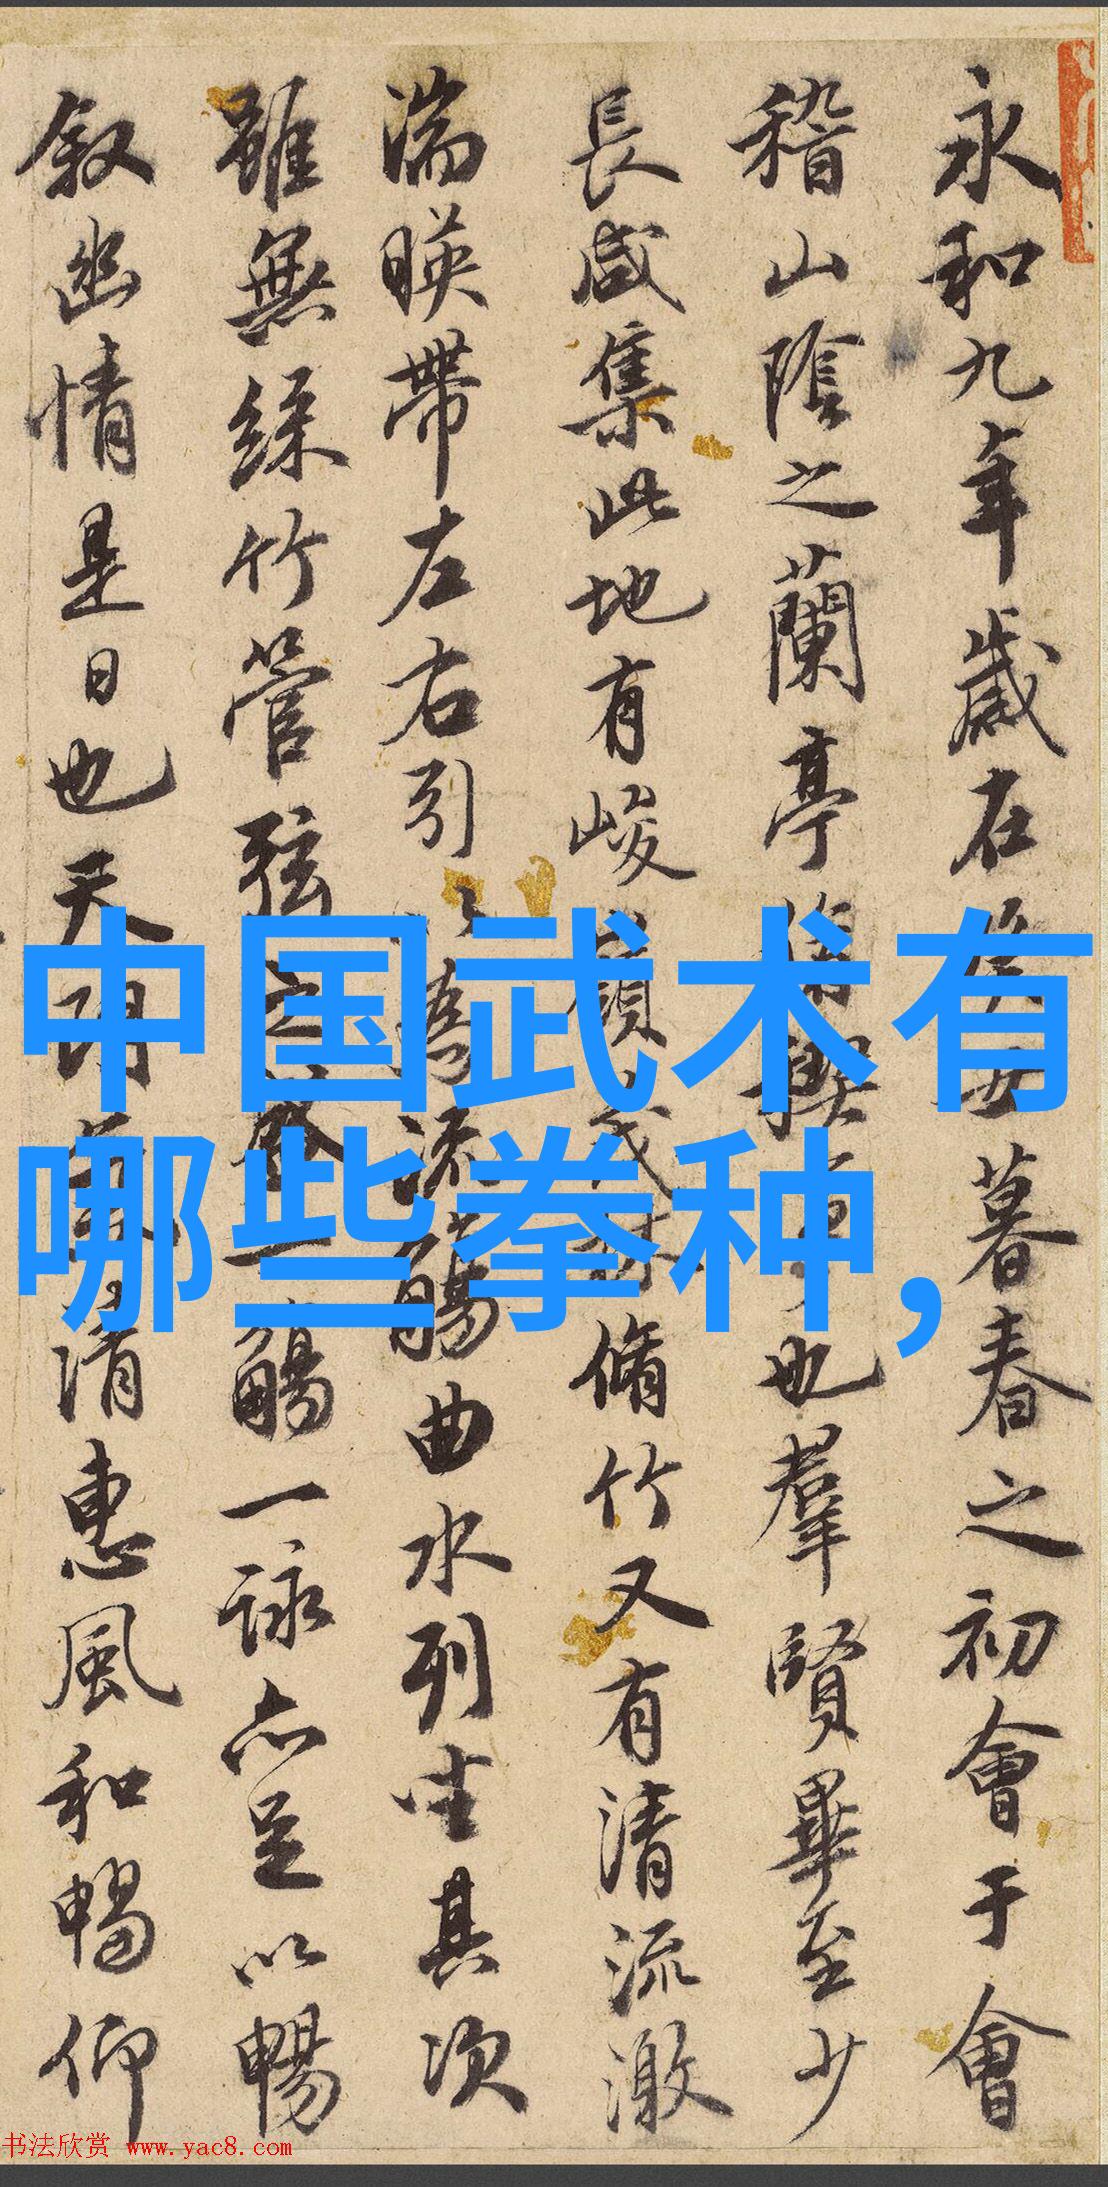 永和九年歲在癸丑暮春之初會于會
稽山陰之蘭亭脩禊事也羣賢畢至少
長咸集此地有峻嶺茂林脩竹又有清流激
湍暎帶左右引以為流觴曲水列坐其次
雖無絲竹管弦之盛一觴一詠亦足以暢
叙幽情是日也天朗氣清惠風和暢仰
中国武术有
哪些拳种,
书法欣赏 www.yac8.com